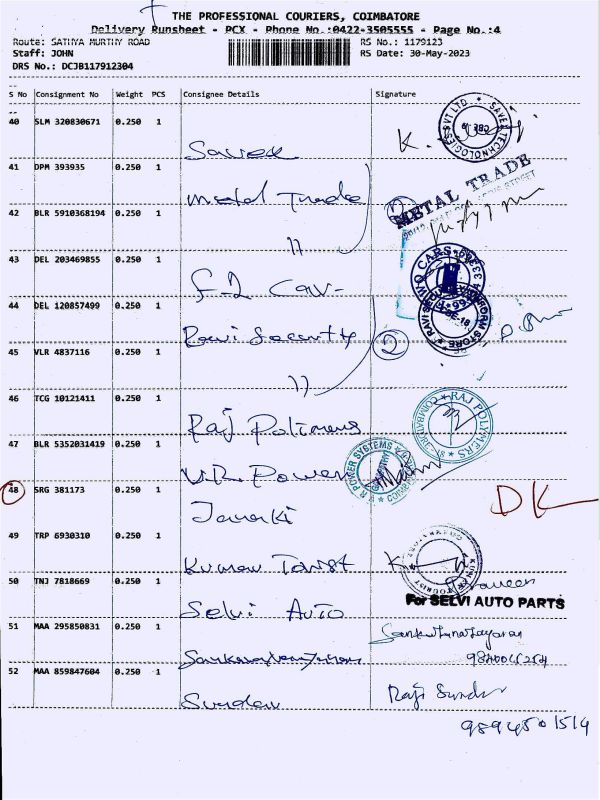 THE PROFESSIONAL COURIERS, COIMBATORE
Delivery Runsheet - PCX - Phone No.:0422-3505555 - Page No.:4
Route: SATHYA MURTHY ROAD RS No.: 1179123
Staff: JOHN RS Date: 30-May-2023
DRS No.: DCJB117912304
S No Consignment No Weight PCS Consignee Details Signature
40 SLM 320830671 0.250 1
41 DPM 393935 0.250 1 Metal Trade
METAL TRADE
42 BLR 5910368194 0.250 1 11
43 DEL 203469855 0.250 1
44 DEL 120857499 0.250 1 Ravi Security
2
45 VLR 4837116 0.250 1 11
46 TCG 10121411 0.250 1 Raj Polimers
RAJ POLYMERS
47 BLR 5352031419 0.250 1 V.R. Power
POWER SYSTEMS
48 SRG 381173 0.250 1 Janaki DK
49 TRP 6930310 0.250 1 Kumar Torist
50 TNJ 7818669 0.250 1 Selvi Auto
For SELVI AUTO PARTS
51 MAA 295850831 0.250 1
52 MAA 859847604 0.250 1 Sundar Raji Sundar
9894501514